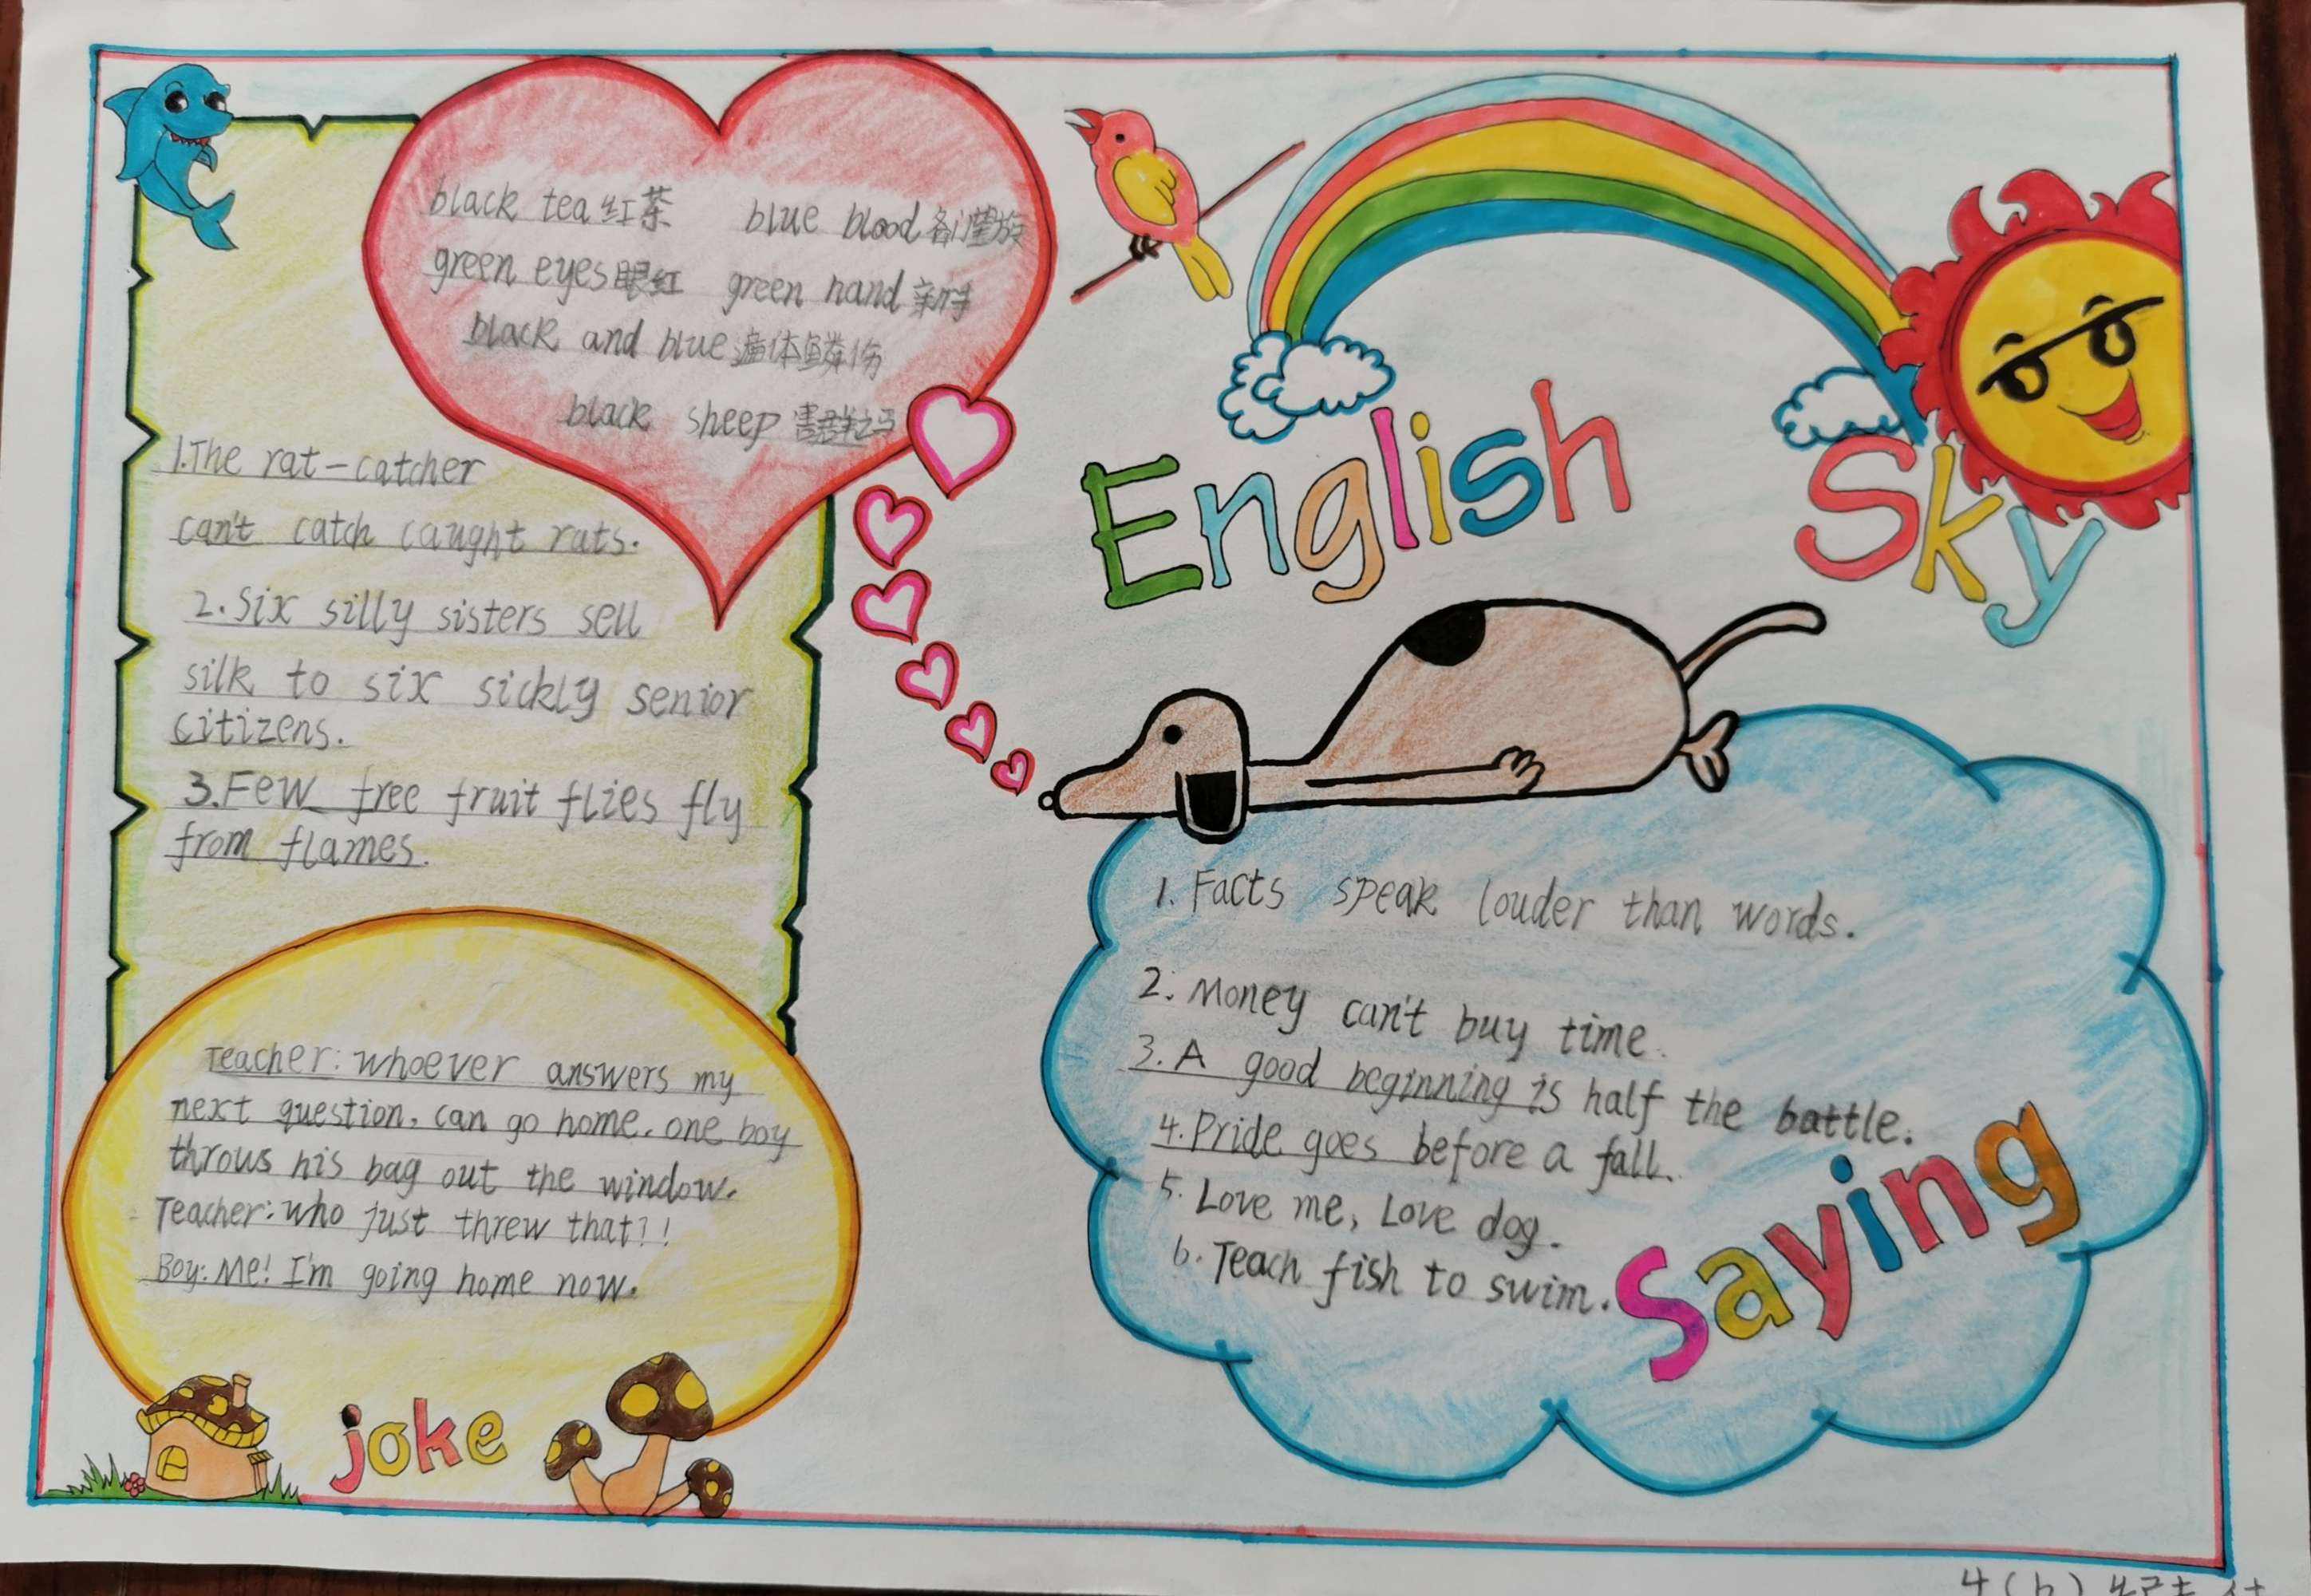 black tea 红茶 blue blood 名门望族
green eyes 眼红 green hand 新手
black and blue 遍体鳞伤
black sheep 害群之马
1.The rat-catcher
can't catch caught rats.
2.Six silly sisters sell
silk to six sickly senior
citizens.
3.Few free fruit flies fly
from flames.
Teacher: whoever answers my
next question, can go home. one boy
throws his bag out the window.
Teacher: who just threw that?!
Boy: Me! I'm going home now.
joke
English Sky
1. Facts speak louder than words.
2. Money can't buy time.
3. A good beginning is half the battle.
4. Pride goes before a fall.
5. Love me, Love dog.
6. Teach fish to swim.
Saying